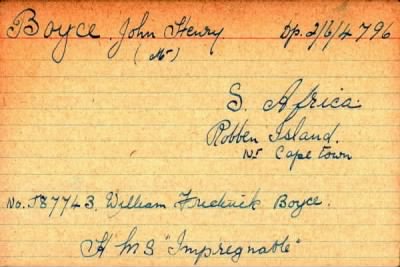 Boyce. John Henry Dp. 2/6/4796
(Mr)
S. Africa.
Robben Island.
Nr Cape town
No. J87743. William Frederick Boyce.
H M S "Impregnable"